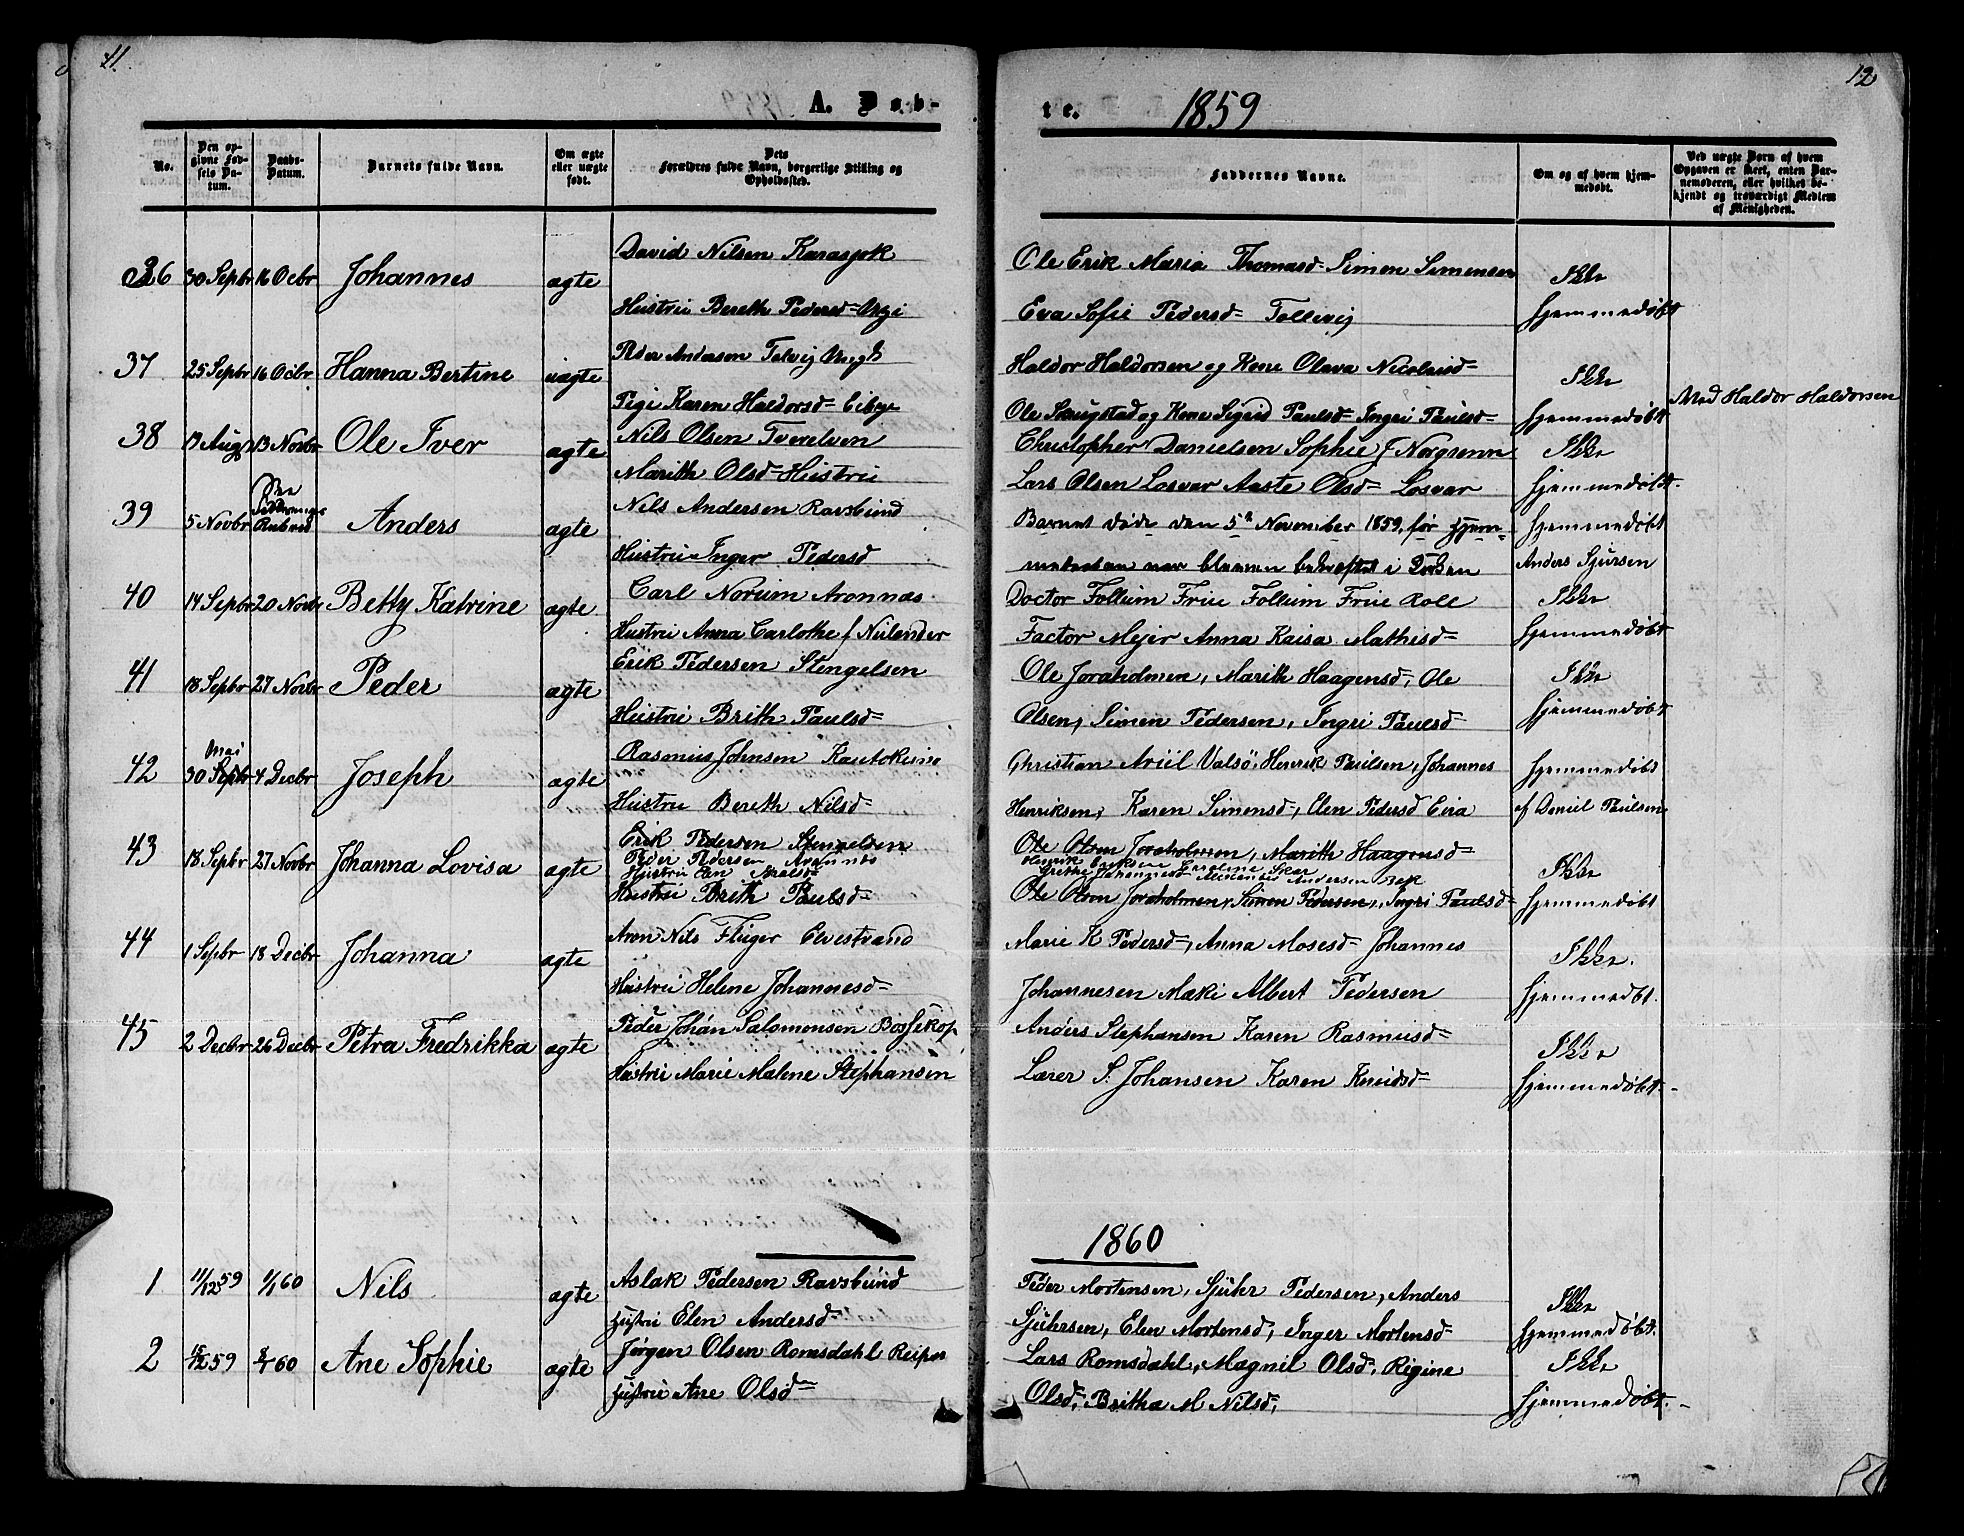 11.
12
A. Døb-
te.
1859
No.
Den opgivne Fødsels Datum.
Daabs-Datum.
Barnets fulde Navn.
Om ægte eller uægte født.
Dets Forældres fulde Navn, borgerlige Stilling og Opholdssted.
Faddernes Navne.
Om og af hvem hjemmedøbt.
Ved uægte Børn af hvem Opgaven er skeet, enten Barnemoderen, eller hvilket bekjendt og troværdigt Medlem af Menigheden.
36 30 Sepbr 16 Ocbr Johannes agte David Nilsen Karasjok
Hustru Bereth Pedersd=
Ole Erik Maria Thomasd= Simon Simensen
Eva Sofie Pedersd= Tollevij
Ikke
hjemmedøbt
37 25 Sepbr 16 Ocbr Hanna Bertine uagte Peder Andersen Talvig Ungk
Pige Karen Haldorsd= Eibye
Haldor Haldorsen og Kone Olava Nicolaisd=
Ole Skrugstad og Kone Sigrid Paulsd= Ingri Paulsd=
Ikke
hjemmedøbt
Med Haldor Haldorsen
38 13 Aug 13 Novbr Ole Iver agte Nils Olsen Tverelven
Marith Olsd= Hustru
Christopher Danielsen Sophie f Norgrenn
Lars Olsen Losvar Aaste Olsd= Losvar
Ikke
hjemmedøbt.
39 5 Novbr Anders agte Nils Andersen Ravsbund
Hustru Inger Pedersd
Barnet døde den 5te November 1859, før Hjem=
medaaben var bleven bekræftet i Kirken
hjemmedøbt
Anders Sjursen
40 14 Sepbr 20 Novbr Betty Katrine agte Carl Norum Aronnæs
Hustru Anna Carlothe f Nulander
Doctor Follum Frue Follum Frue Roll
Factor Mejer Anna Kaisa Mathisd=
Ikke
hjemmedøbt
41 18 Sepbr 27 Novbr Peder agte Erik Pedersen Stengelsen
Hustru Brith Paulsd=
Ole Joraholmen, Marith Haagensd=, Ole
Olsen, Simon Pedersen, Ingri Paulsd=
Ikke
hjemmedøbt
42 Mai
30 Sepbr 4 Decbr Joseph agte Rasmus Johnsen Kautokeino
Hustru Bereth Nilsd=
Christian Ariil Valsö, Henrik Paulsen, Johannes
Henriksen, Karen Simonsd=, Elen Pedersd Eira
hjemmedøbt
af Daniel Paulsen
43 18 Sepbr 27 Novbr Johanna Lovisa agte Erik Pedersen Stengelsen
Peder Pedersen Aronnæs
Hustru Elen
Hustru Brith Paulsd=
Ole Olsen Joraholmen, Marith Haagensd=
Henrik Eriksen Caroline Skar
Grethe Johannesd= Alexander Andersen Bek
Ole Olsen Joraholmen, Simon Pedersen, Ingri Paulsd=
Ikke
hjemmedøbt
44 1 Sepbr 18 Decbr Johanna agte Aron Nils Fluger Elvestrand
Hustru Helene Johannesd=
Marie K Pedersd=, Anna Mosesd= Johannes
Johannesen Mæki Albert Pedersen
Ikke.
hjemmedøbt.
45 2 Decbr 26 Decbr Petra Fredrikka agte Peder Johan Salomonsen Bossekop
Hustru Marie Malene Stephansen
Anders Stephansen Karen Rasmusd=
Lærer S. Johansen Karen Knudsd=
Ikke
hjemmedøbt.
1860
1 11/12 59 1/1 60 Nils agte Aslak Pedersen Ravsbund
Hustru Elen Andersd=
Peder Mortensen, Sjuhr Pedersen, Anders
Sjuhrsen, Elen Mortensd=, Inger Mortensd=
Ikke
hjemmedøbt.
2 15/12 59 8/1 60 Ane Sophie agte Jørgen Olsen Romsdahl Reipas
Hustru Ane Olsd=
Lars Romsdahl, Magnil Olsd=, Rigine
Olsd=, Britha M Nilsd=,
Ikke
hjemmedøbt.